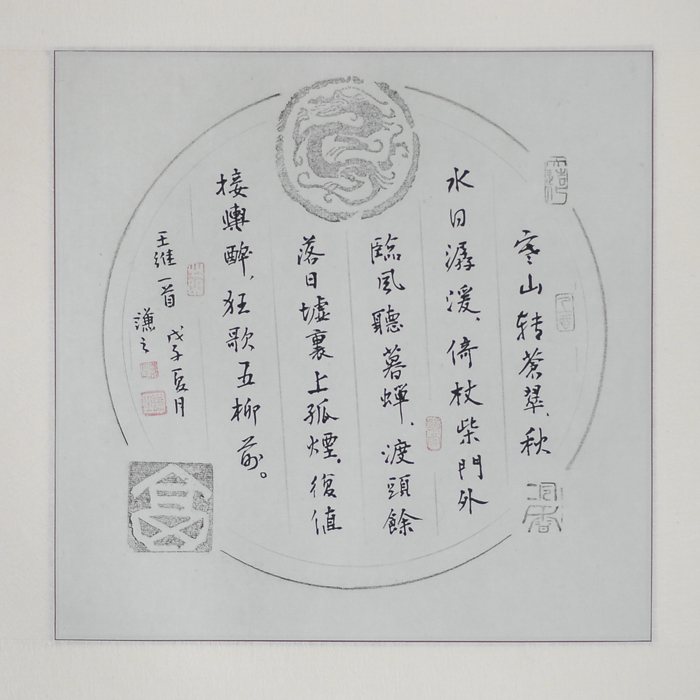 寒山转蒼翠、秋
水日潺湲、倚杖柴門外
臨風聽暮蝉、渡頭餘
落日墟裏上孤煙。復值
接輿醉,狂歌五柳前。
王维一首 戊子夏月
謙之